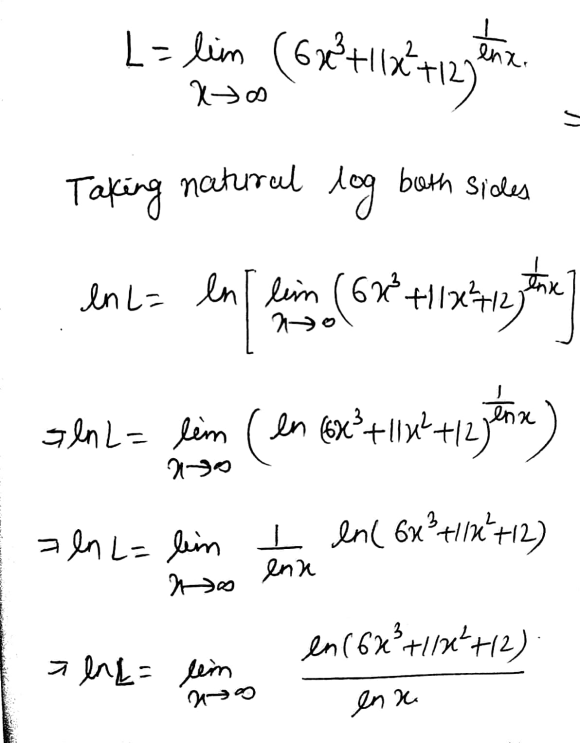 L = lim x→∞ (6x³+11x²+12)^(1/ln x).
=
Taking natural log both sides
ln L = ln [ lim x→∞ (6x³+11x²+12)^(1/ln x) ]
⇒ ln L = lim x→∞ ( ln (6x³+11x²+12)^(1/ln x) )
⇒ ln L = lim x→∞ 1/ln x ln( 6x³+11x²+12)
⇒ ln L = lim x→∞ ln(6x³+11x²+12) / ln x